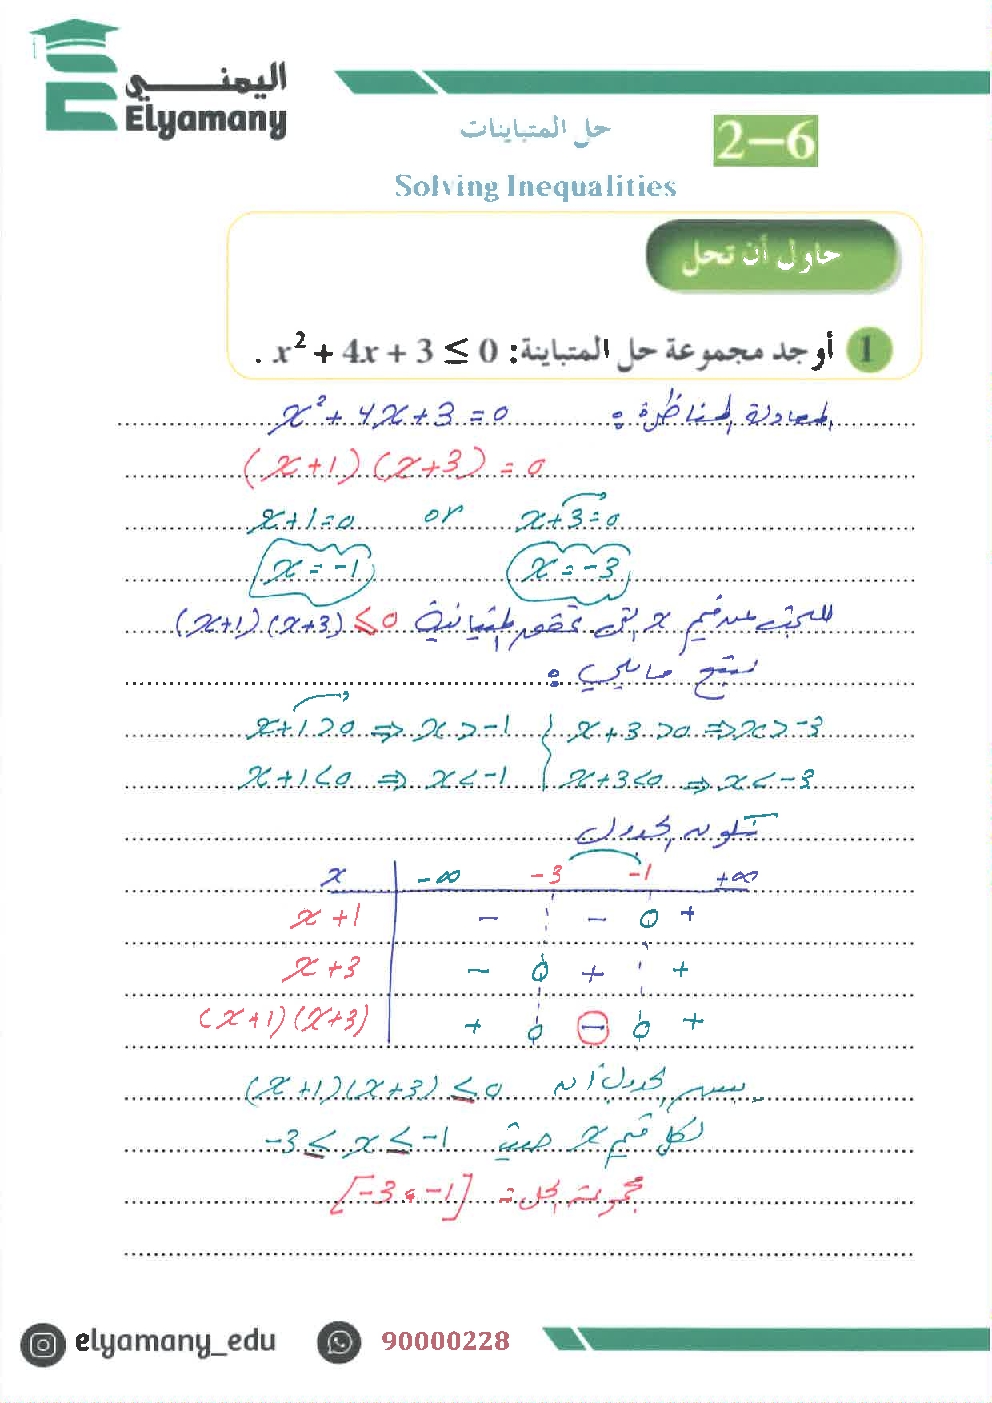 اليمني
Elyamany
حل المتباينات
2-6
Solving Inequalities
حاول أن تحل
1 أوجد مجموعة حل المتباينة: x² + 4x + 3 ≤ 0 .
المعادلة المناظرة : x² + 4x + 3 = 0
(x+1) (x+3) = 0
x+1=0 or x+3=0
x = -1 x = -3
للبحث عن قيم x التي تحقق المتباينة (x+1) (x+3) ≤ 0
نتبع ما يلي :
x+1>0 ⇒ x>-1 x+3>0 ⇒ x>-3
x+1<0 ⇒ x<-1 x+3<0 ⇒ x<-3
نكون الجدول
x -∞ -3 -1 +∞
x+1 - - 0 +
x+3 - 0 + +
(x+1)(x+3) + 0 - 0 +
يبين الجدول أن (x+1)(x+3) ≤ 0
لكل قيم x حيث -3 ≤ x ≤ -1
مجموعة الحل = [-3 ، -1]
elyamany_edu 90000228